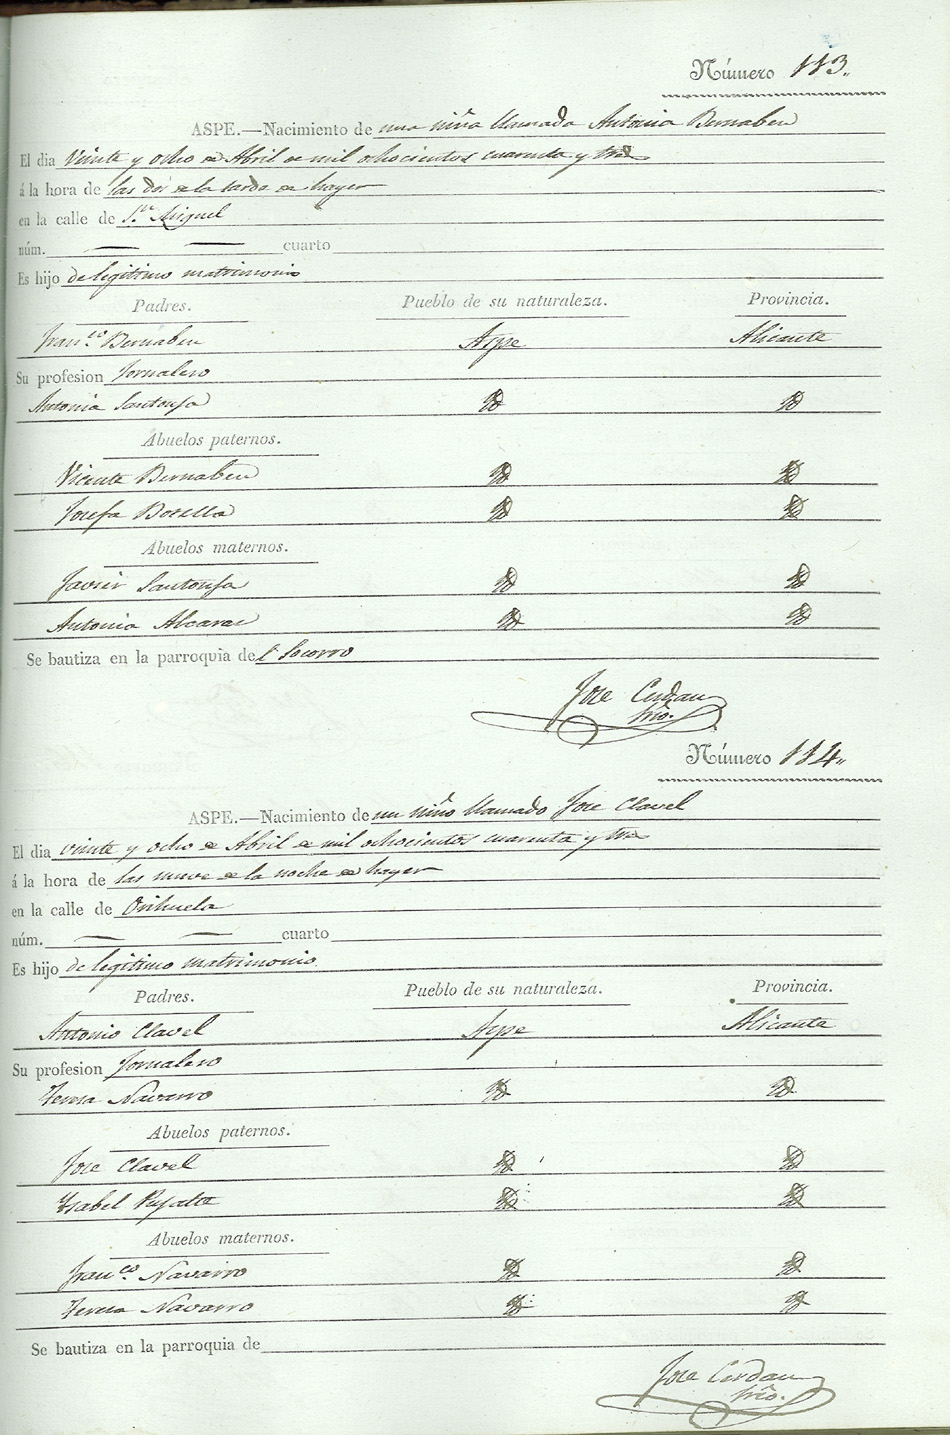 Número 113.
ASPE.—Nacimiento de una niña llamada Antonia Bernabeu
El dia Veinte y ocho de Abril de mil ochocientos cuarenta y tres
á la hora de las dos de la tarde de hayer
en la calle de Sn Miguel
núm. — — cuarto
Es hijo de legitimo matrimonio
Padres. Pueblo de su naturaleza. Provincia.
Franco. Bernabeu Aspe Alicante
Su profesion Jornalero
Antonia Santonja Yd Yd
Abuelos paternos.
Vicente Bernabeu Yd Yd
Josefa Botella Yd Yd
Abuelos maternos.
Javier Santonja Yd Yd
Antonia Alcaras Yd Yd
Se bautiza en la parroquia de l Socorro
Jose Cerdan
Srio.
Número 114.
ASPE.—Nacimiento de un niño llamado Jose Clavel
El dia veinte y ocho de Abril de mil ochocientos cuarenta y tres
á la hora de las nueve de la noche de hayer
en la calle de Orihuela
núm. — — cuarto
Es hijo de legitimo matrimonio
Padres. Pueblo de su naturaleza. Provincia.
Antonio Clavel Aspe Alicante
Su profesion Jornalero
Teresa Navarro Yd Yd
Abuelos paternos.
Jose Clavel Yd Yd
Ysabel Yd Yd
Abuelos maternos.
Franco. Navarro Yd Yd
Teresa Navarro Yd Yd
Se bautiza en la parroquia de
Jose Cerdan
Srio.